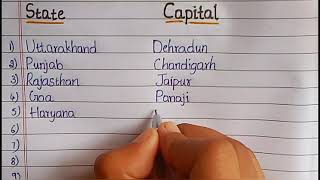 State Capital
1) Uttarakhand Dehradun
2) Punjab Chandigarh
3) Rajasthan Jaipur
4) Goa Panaji
5) Haryana
6)
7)
8)
9)